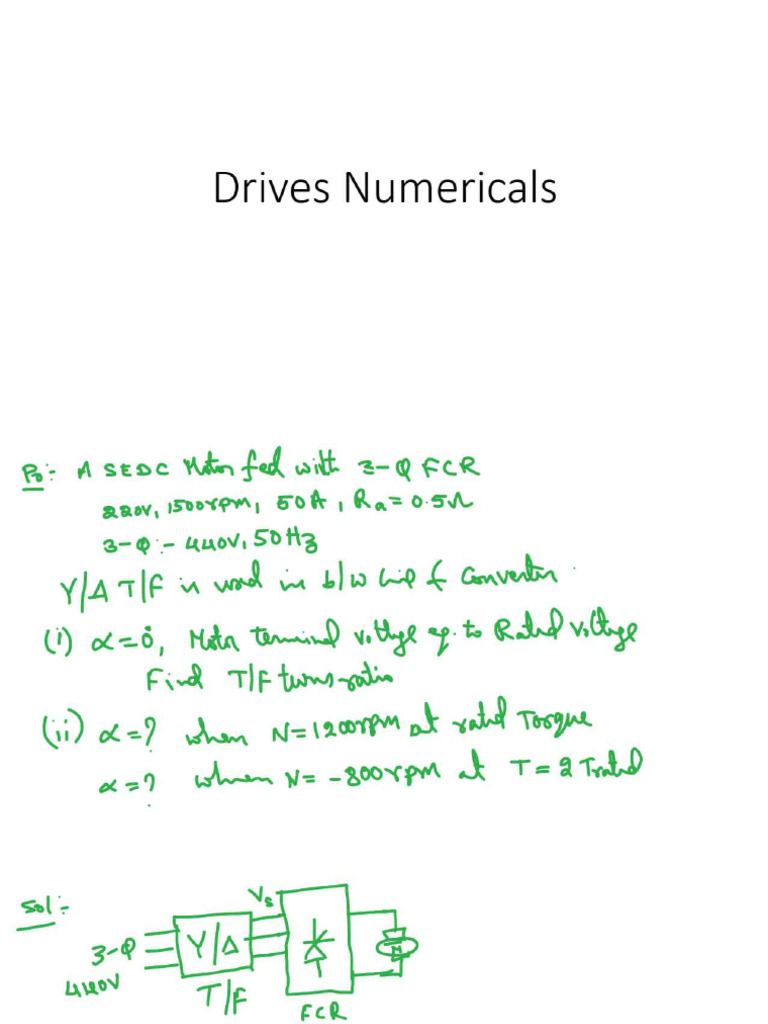 Drives Numericals
Po:- A SEDC Motor fed with 3-Φ FCR
220V, 1500rpm, 50A, Ra = 0.5Ω
3-Φ:- 440V, 50Hz
Y/Δ T/F is used in b/w line & Converter.
(i) α=0°, Motor terminal voltage eq. to Rated voltage
Find T/F turns ratio
(ii) α=? when N=1200rpm at rated Torque
α=? when N= -800rpm at T = 2 Trated
Sol:-
Vs
3-Φ
Y/Δ
M
440V
T/F
FCR